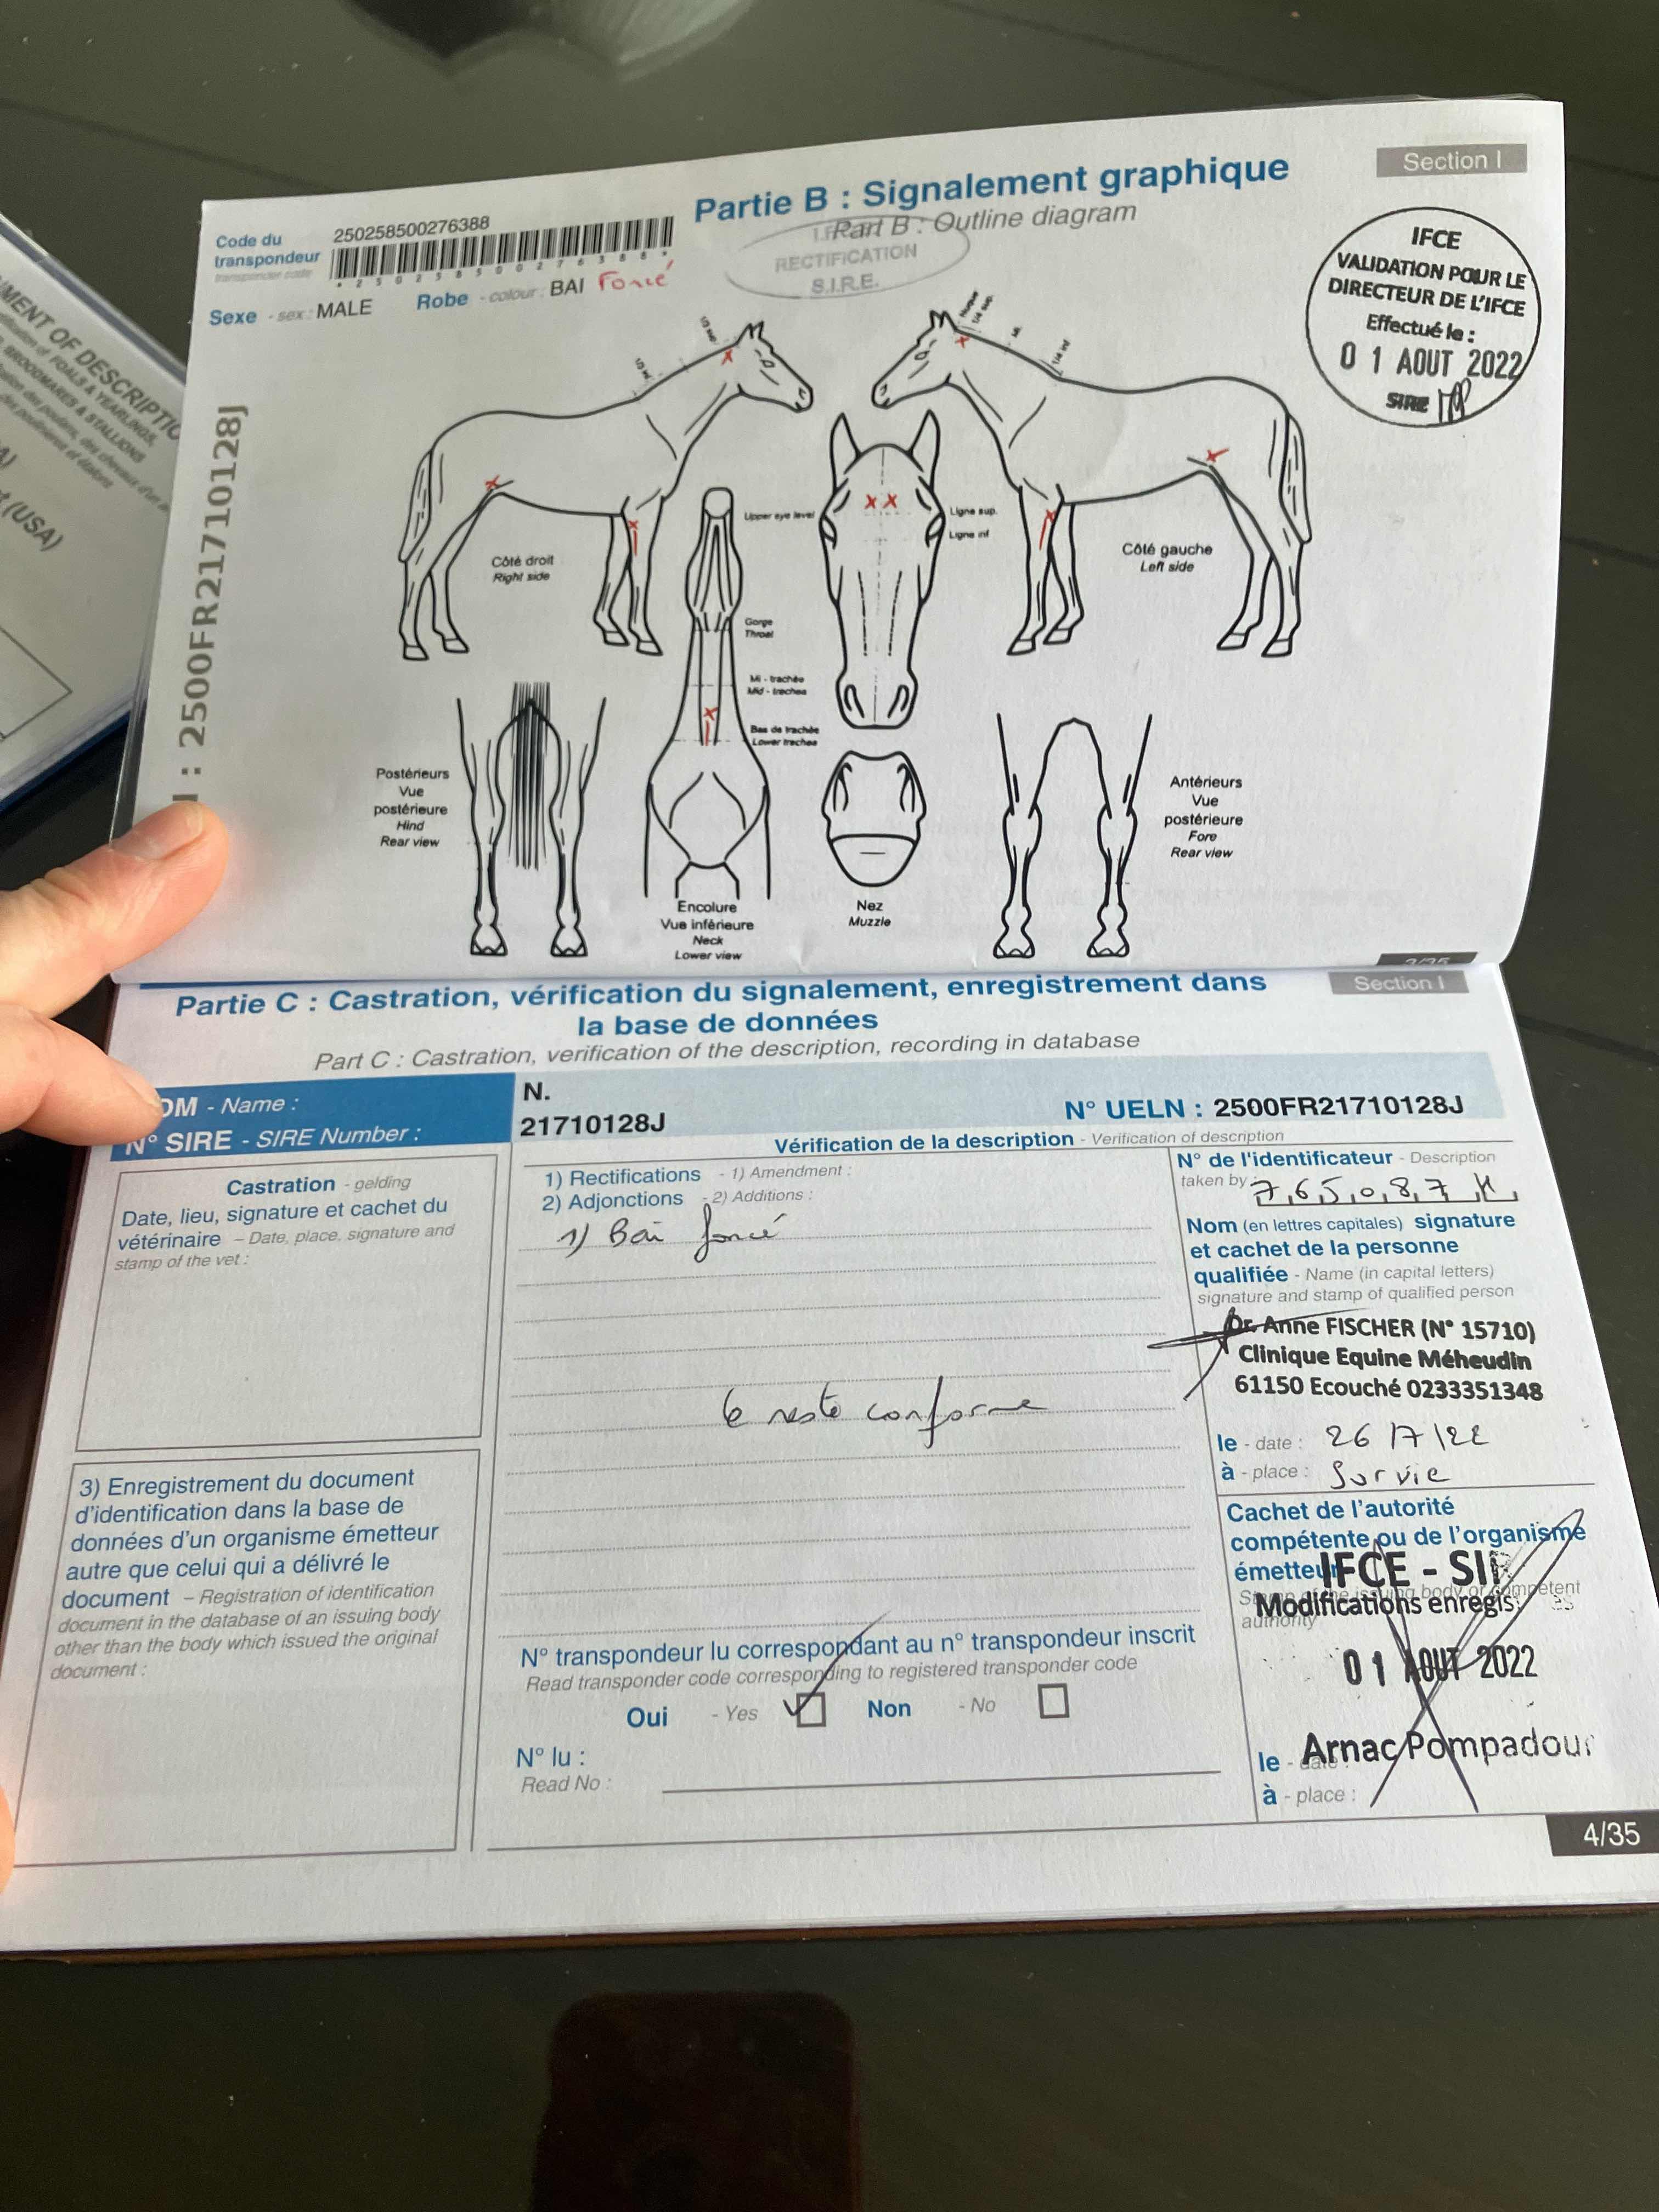 Section I
Partie B : Signalement graphique
Part B : Outline diagram
Code du transpondeur
transponder code
250258500276388
* 2 5 0 2 5 8 5 0 0 2 7 6 3 8 8 *
Sexe - sex : MALE
Robe - colour : BAI Foncé
RECTIFICATION
S.I.R.E.
IFCE
VALIDATION POUR LE
DIRECTEUR DE L'IFCE
Effectué le :
0 1 AOUT 2022
SIRE
: 2500FR21710128J
MENT OF DESCRIPTIO
FOALS & YEARLINGS,
BROODMARES & STALLIONS
(USA)
Côté droit
Right side
Upper eye level
Ligne sup.
Ligne inf
Côté gauche
Left side
Gorge
Throat
Mi - trachée
Mid - trachea
Bas de trachée
Lower trachea
Postérieurs
Vue
postérieure
Hind
Rear view
Encolure
Vue inférieure
Neck
Lower view
Nez
Muzzle
Antérieurs
Vue
postérieure
Fore
Rear view
Section I
Partie C : Castration, vérification du signalement, enregistrement dans
la base de données
Part C : Castration, verification of the description, recording in database
- Name :
N.
N° SIRE - SIRE Number :
21710128J
N° UELN : 2500FR21710128J
Vérification de la description - Verification of description
Castration - gelding
Date, lieu, signature et cachet du
vétérinaire - Date, place, signature and
stamp of the vet :
1) Rectifications - 1) Amendment :
2) Adjonctions - 2) Additions :
1) Bai foncé
le reste conforme
N° de l'identificateur - Description
taken by :
Nom (en lettres capitales) signature
et cachet de la personne
qualifiée - Name (in capital letters)
signature and stamp of qualified person
Dr. Anne FISCHER (N° 15710)
Clinique Equine Méheudin
61150 Ecouché 0233351348
le - date : 26/7/22
à - place : Survie
3) Enregistrement du document
d'identification dans la base de
données d'un organisme émetteur
autre que celui qui a délivré le
document - Registration of identification
document in the database of an issuing body
other than the body which issued the original
document :
N° transpondeur lu correspondant au n° transpondeur inscrit
Read transponder code corresponding to registered transponder code
Oui - Yes Non - No
N° lu :
Read No :
Cachet de l'autorité
compétente ou de l'organisme
émetteur
Stamp of the issuing body or competent
authority
IFCE - SIR
Modifications enregis
0 1 AOUT 2022
Arnac Pompadour
le - date :
à - place :
4/35